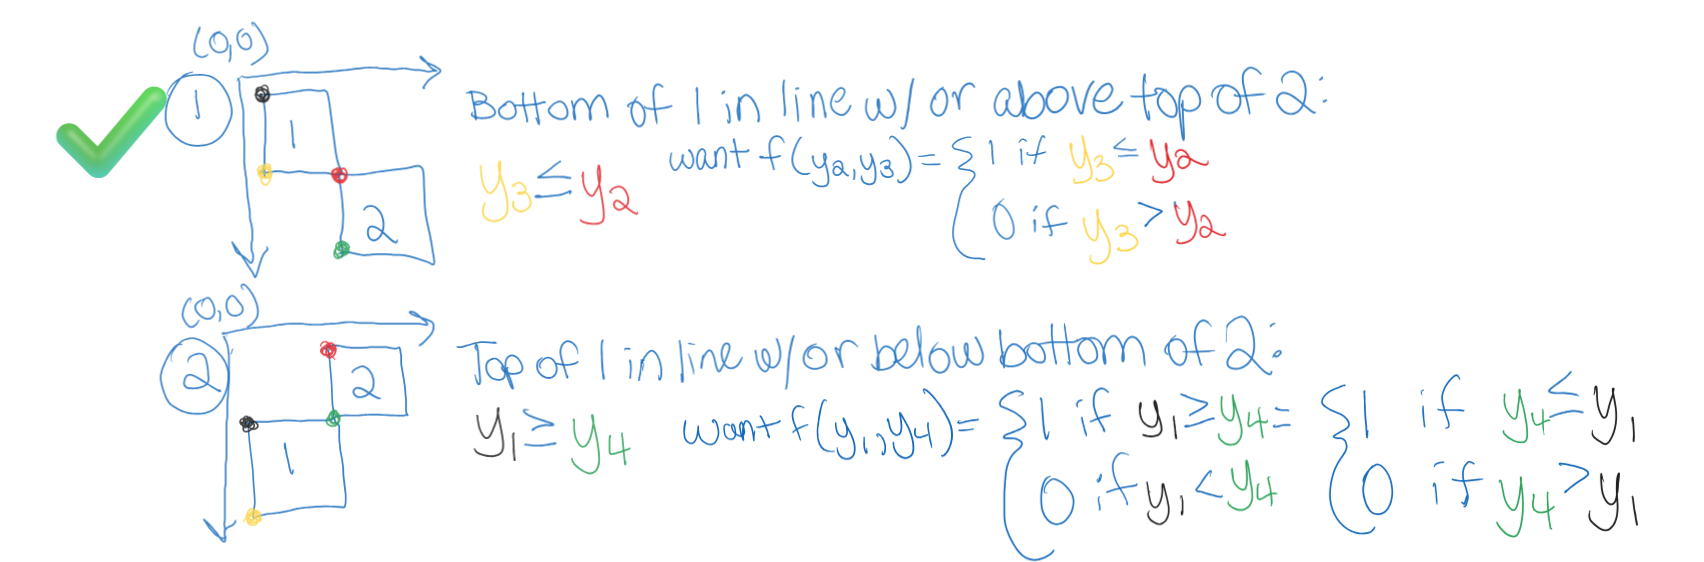 (0,0)
1
1
2
Bottom of 1 in line w/ or above top of 2:
y3 ≤ y2
want f(y2,y3) = { 1 if y3 ≤ y2
0 if y3 > y2
(0,0)
2
2
1
Top of 1 in line w/or below bottom of 2:
y1 ≥ y4
want f(y1,y4) = { 1 if y1 ≥ y4 = { 1 if y4 ≤ y1
0 if y1 < y4 0 if y4 > y1